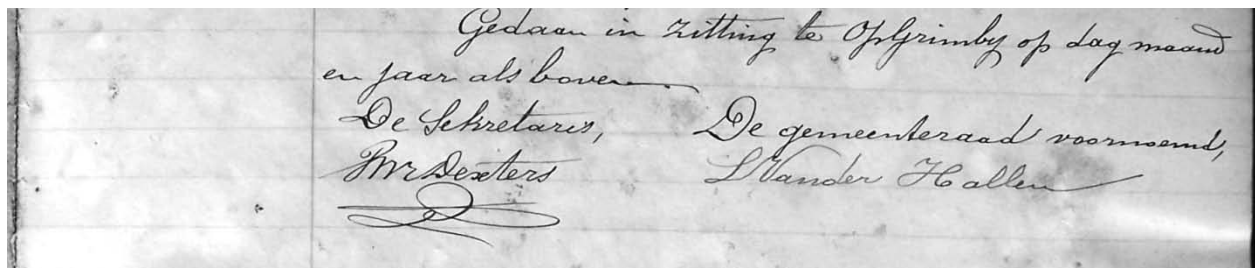 Gedaan in zitting te OpGrimby op dag maand
en jaar als boven
De Sekretaris, De gemeenteraad voornoemd,
Dexters L Vander Hallen